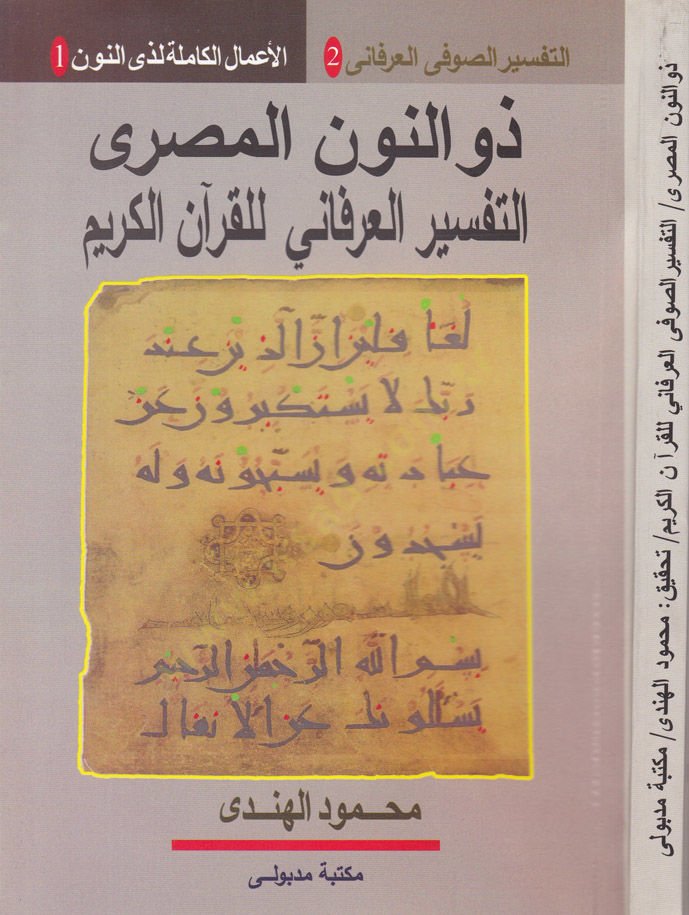 التفسير الصوفى العرفانى 2
الأعمال الكاملة لذى النون 1
ذو النون المصرى
التفسير العرفاني للقرآن الكريم
لغفا فلنزازالذ ينزعند
ربك لا يستكبروزعز
عبادته ويسبحونه وله
يسجدوز
بسم الله الرحمن الرحيم
يسئلونك عن الانفال
محمود الهندى
مكتبة مدبولى
ذو النون المصرى/ التفسير الصوفى العرفاني للقرآن الكريم/ تحقيق: محمود الهندى/ مكتبة مدبولى